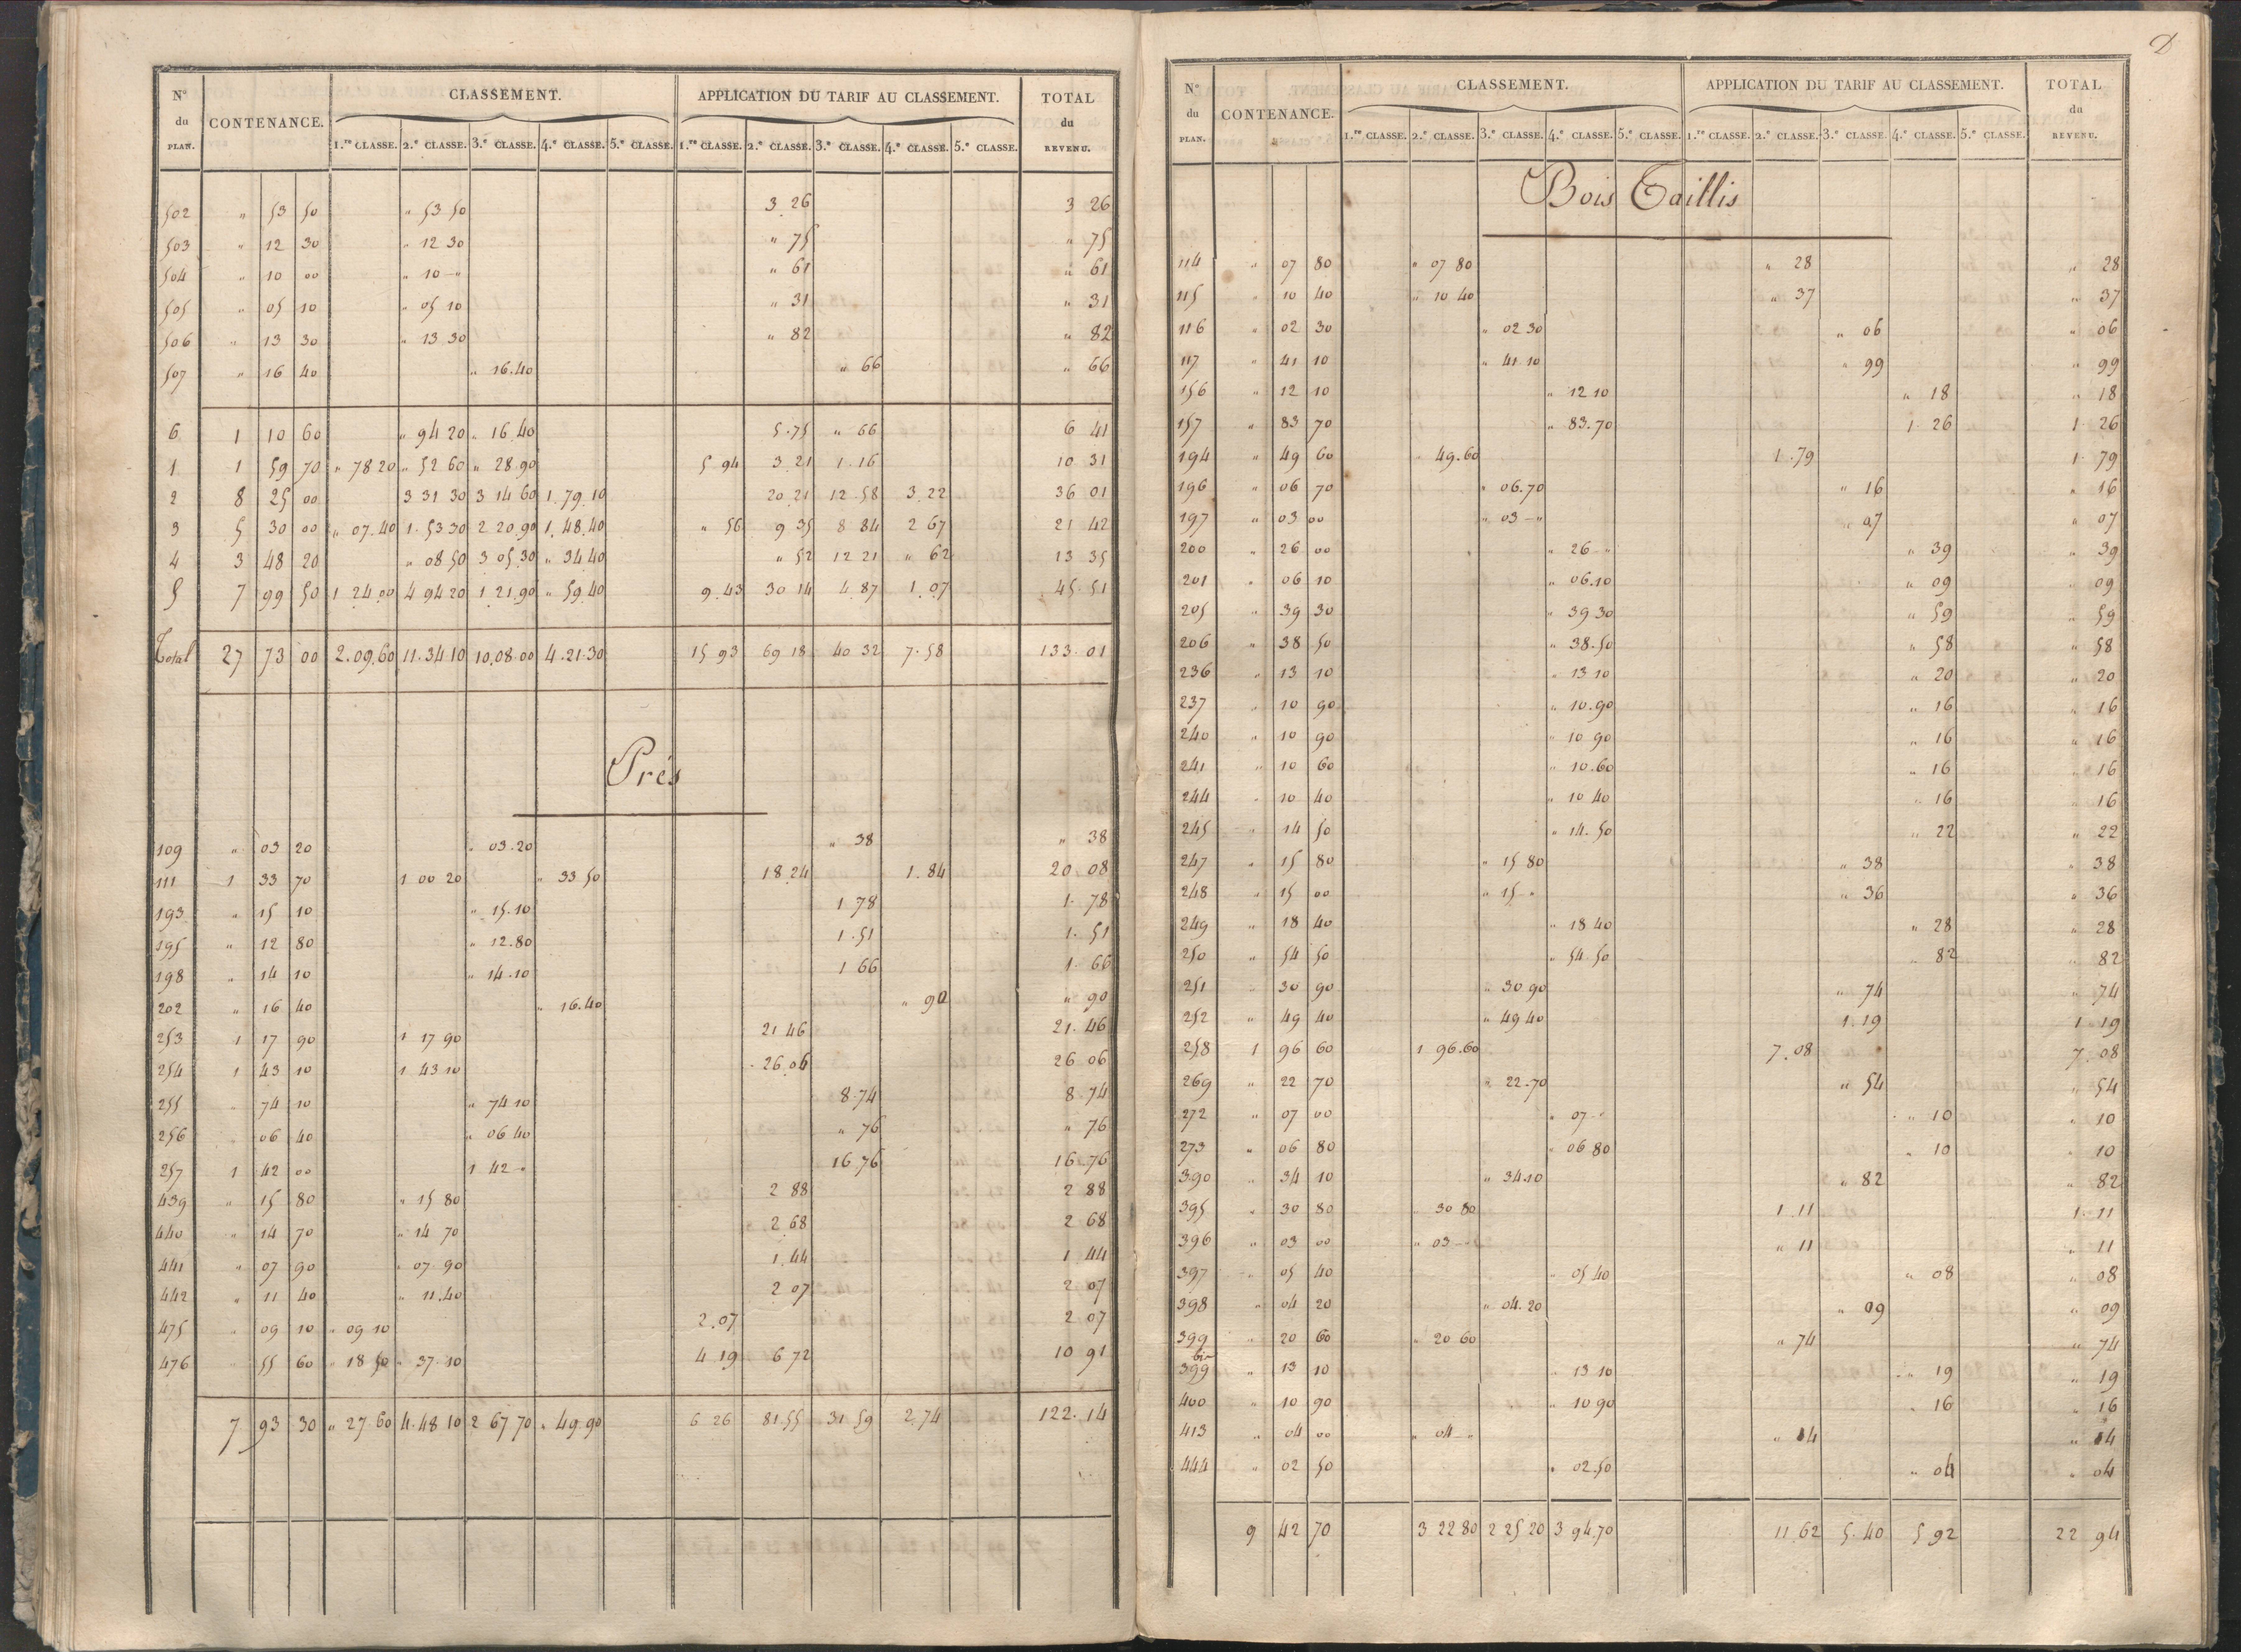 N° du PLAN. CONTENANCE. CLASSEMENT. APPLICATION DU TARIF AU CLASSEMENT. TOTAL du REVENU.
1.re CLASSE. 2.e CLASSE. 3.e CLASSE. 4.e CLASSE. 5.e CLASSE. 1.re CLASSE. 2.e CLASSE. 3.e CLASSE. 4.e CLASSE. 5.e CLASSE.
502 " 53 50 " 53 50 3 26 3 26
503 " 12 30 " 12 30 " 75 " 75
504 " 10 00 " 10 - " " 61 " 61
505 " 05 10 " 05 10 " 31 " 31
506 " 13 30 " 13 30 " 82 " 82
507 " 16 40 " 16.40 " 66 " 66
6 1 10 60 " 94 20 " 16.40 5.75 " 66 6 41
1 1 59 70 " 78 20 " 52 60 " 28.90 5 94 3 21 1.16 10 31
2 8 25 00 3 31 30 3 14 60 1.79.10 20 21 12.58 3.22 36 01
3 5 30 00 " 07.40 1.53 30 2 20.90 1.48.40 " 56 9 35 8 84 2 67 21 42
4 3 48 20 " 08 50 3 05.30 " 34 40 " 52 12 21 " 62 13 35
5 7 99 50 1 24.00 4 94 20 1.21.90 " 59.40 9.43 30 14 4.87 1.07 45.51
Total 27 73 00 2.09.60 11.34 10 10.08.00 4.21.30 15 93 69 18 40 32 7.58 133.01
Prés
109 " 03 20 " 03.20 " 38 " 38
111 1 33 70 1 00 20 " 33 50 18.24 1.84 20 08
193 " 15 10 " 15.10 1 78 1.78
195 " 12 80 " 12.80 1.51 1.51
198 " 14 10 " 14.10 1 66 1.66
202 " 16 40 " 16.40 " 90 " 90
253 1 17 90 1 17 90 21 46 21.46
254 1 43 10 1 43 10 26.06 26 06
255 " 74 10 " 74 10 8.74 8 74
256 " 06 40 " 06 40 " 76 " 76
257 1 42 00 1 42 - " 16.76 16 76
439 " 15 80 " 15 80 2 88 2 88
440 " 14 70 " 14 70 2 68 2 68
441 " 07 90 " 07 90 1.44 1 44
442 " 11 40 " 11.40 2 07 2 07
475 " 09 10 " 09 10 2.07 2 07
476 " 55 60 " 18 50 " 37.10 4 19 6 72 10 91
7 93 30 " 27.60 4.48 10 2 67 70 " 49.90 6 26 81.55 31 59 2.74 122.14
N° du PLAN. CONTENANCE. CLASSEMENT. APPLICATION DU TARIF AU CLASSEMENT. TOTAL du REVENU.
1.re CLASSE. 2.e CLASSE. 3.e CLASSE. 4.e CLASSE. 5.e CLASSE. 1.re CLASSE. 2.e CLASSE. 3.e CLASSE. 4.e CLASSE. 5.e CLASSE.
Bois Taillis
114 " 07 80 " 07 80 " 28 " 28
115 " 10 40 " 10 40 " 37 " 37
116 " 02 30 " 02 30 " 06 " 06
117 " 41 10 " 41.10 " 99 " 99
156 " 12 10 " 12 10 " 18 " 18
157 " 83 70 " 83.70 1.26 1.26
194 " 49 60 " 49.60 1.79 1.79
196 " 06 70 " 06.70 " 16 " 16
197 " 03 00 " 03 - " " 07 " 07
200 " 26 00 " 26 - " " 39 " 39
201 " 06 10 " 06.10 " 09 " 09
205 " 39 30 " 39 30 " 59 " 59
206 " 38 50 " 38.50 " 58 " 58
236 " 13 10 " 13 10 " 20 " 20
237 " 10 90 " 10.90 " 16 " 16
240 " 10 90 " 10 90 " 16 " 16
241 " 10 60 " 10.60 " 16 " 16
244 " 10 40 " 10 40 " 16 " 16
245 " 14 50 " 14.50 " 22 " 22
247 " 15 80 " 15 80 " 38 " 38
248 " 15 00 " 15 - " " 36 " 36
249 " 18 40 " 18 40 " 28 " 28
250 " 54 50 " 54.50 " 82 " 82
251 " 30 90 " 30.90 " 74 " 74
252 " 49 40 " 49 40 1.19 1 19
258 1 96 60 1 96.60 7.08 7.08
269 " 22 70 " 22.70 " 54 " 54
272 " 07 00 " 07 - " " 10 " 10
273 " 06 80 " 06 80 " 10 " 10
390 " 34 10 " 34.10 " 82 " 82
395 " 30 80 " 30 80 1.11 1.11
396 " 03 00 " 03 - " " 11 " 11
397 " 05 40 " 05 40 " 08 " 08
398 " 04 20 " 04.20 " 09 " 09
399 " 20 60 " 20 60 " 74 " 74
399 bis " 13 10 " 13 10 " 19 " 19
400 " 10 90 " 10 90 " 16 " 16
413 " 04 00 " 04 - " " 14 " 14
444 " 02 50 " 02.50 " 04 " 04
9 42 70 3 22 80 2 25 20 3 94.70 11.62 5.40 5 92 22 94